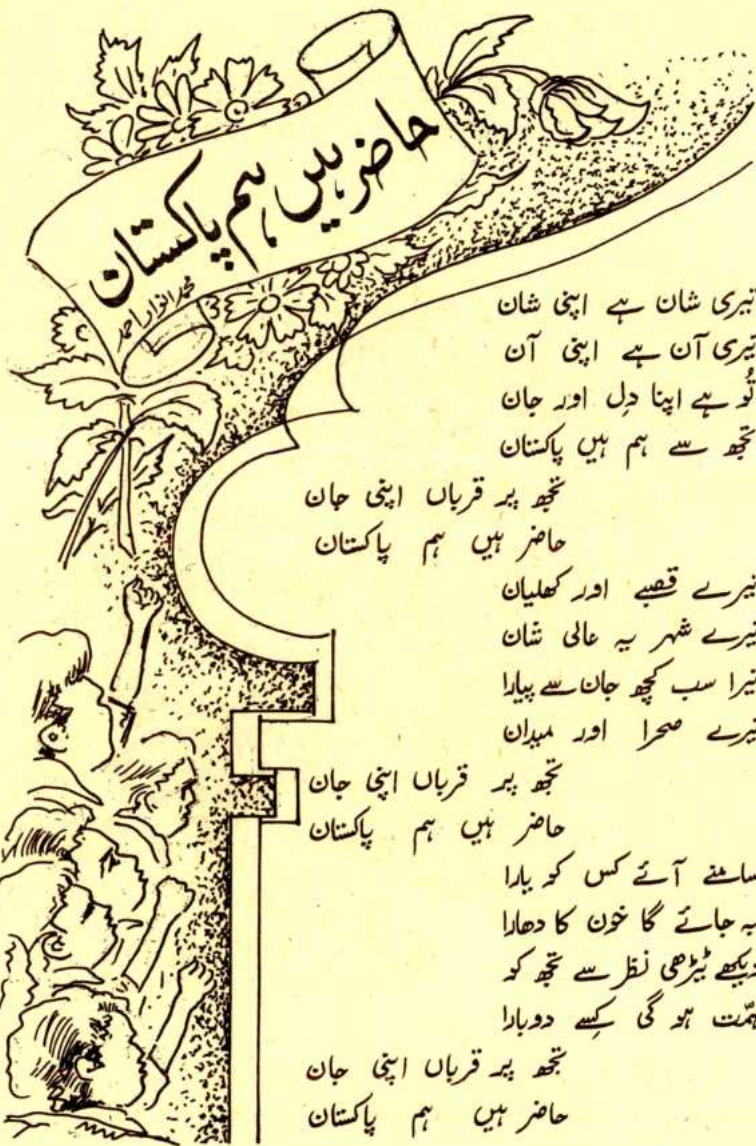 حاضر ہیں ہم پاکستان
محمد انوار احمد
تیری شان ہے اپنی شان
تیری آن ہے اپنی آن
تُو ہے اپنا دِل اور جان
تجھ سے ہم ہیں پاکستان
تجھ پر قرباں اپنی جان
حاضر ہیں ہم پاکستان
تیرے قصبے اور کھلیان
تیرے شہر یہ عالی شان
تیرا سب کچھ جان سے پیارا
تیرے صحرا اور میدان
تجھ پر قرباں اپنی جان
حاضر ہیں ہم پاکستان
سامنے آئے کس کو یارا
بہ جائے گا خون کا دھارا
دیکھے ٹیڑھی نظر سے تجھ کو
ہمّت ہو گی کِسے دوبارا
تجھ پر قرباں اپنی جان
حاضر ہیں ہم پاکستان